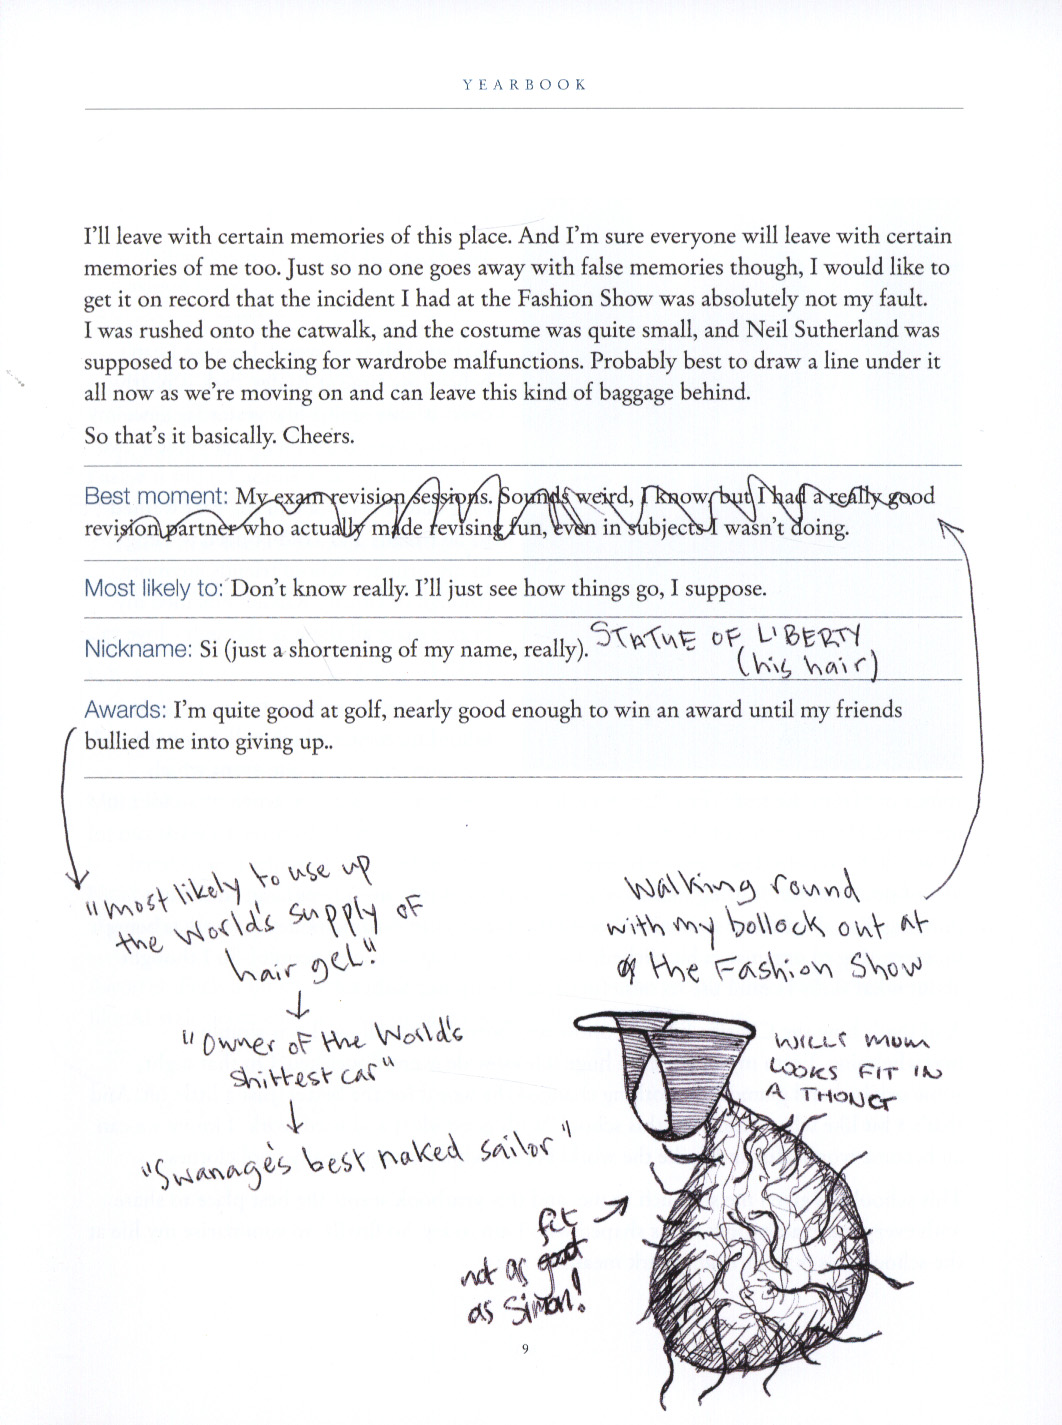 YEARBOOK
I'll leave with certain memories of this place. And I'm sure everyone will leave with certain
memories of me too. Just so no one goes away with false memories though, I would like to
get it on record that the incident I had at the Fashion Show was absolutely not my fault.
I was rushed onto the catwalk, and the costume was quite small, and Neil Sutherland was
supposed to be checking for wardrobe malfunctions. Probably best to draw a line under it
all now as we're moving on and can leave this kind of baggage behind.
So that's it basically. Cheers.
Best moment: My exam revision sessions. Sounds weird, I know, but I had a really good
revision partner who actually made revising fun, even in subjects I wasn't doing.
Most likely to: Don't know really. I'll just see how things go, I suppose.
Nickname: Si (just a shortening of my name, really). STATUE OF LIBERTY
(his hair)
Awards: I'm quite good at golf, nearly good enough to win an award until my friends
bullied me into giving up..
"most likely to use up
the World's supply of
hair gel!"
"Owner of the World's
shittest car"
"Swanage's best naked sailor"
Walking round
with my bollock out at
the Fashion Show
WILLS MUM
LOOKS FIT IN
A THONG
fit
not as good
as Simon!
9